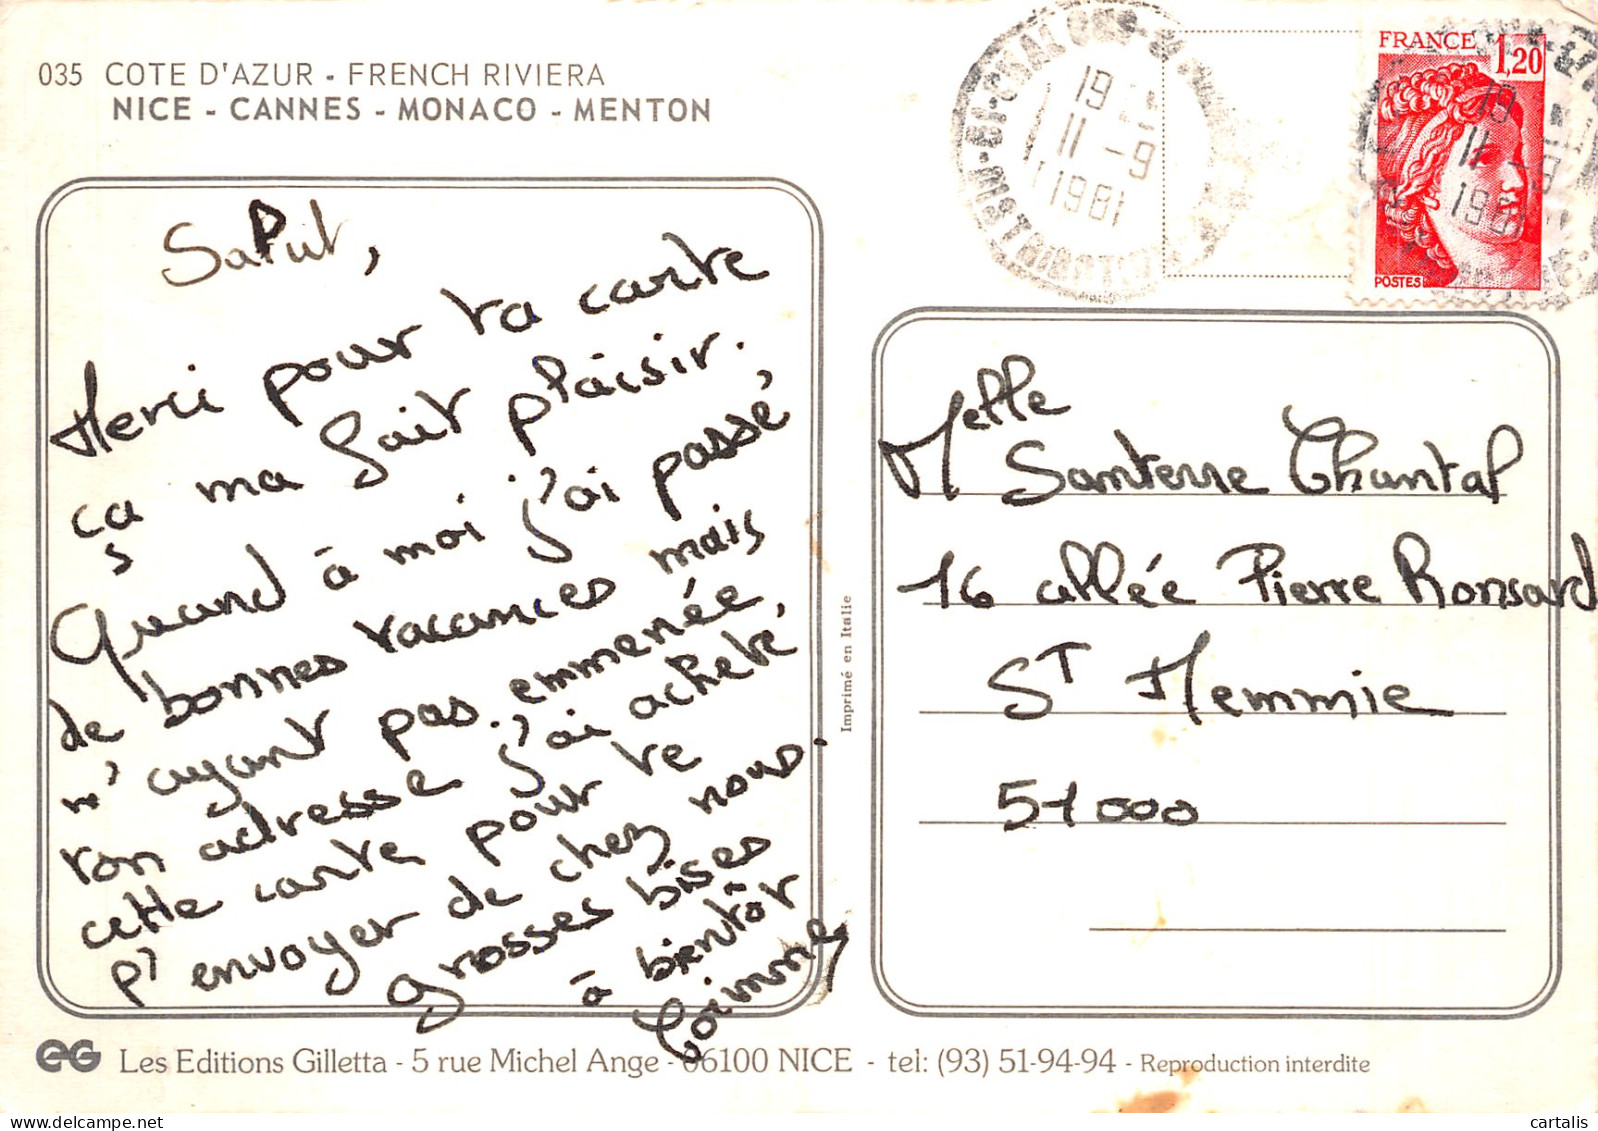 035 COTE D'AZUR - FRENCH RIVIERA
NICE - CANNES - MONACO - MENTON
Salut,
Merci pour ta carte
ça ma fait plaisir.
Quand à moi j'ai passé
de bonnes vacances mais
n'ayant pas emmenée
ton adresse j'ai acheté
cette carte pour te
l'envoyer de chez nous.
grosses bises
à bientôt
Corinne
Imprimé en Italie
19
11 -9
1981
FRANCE 1,20
POSTES
19
11 -9
1981
Melle
Santerre Chantal
16 allée Pierre Ronsard
ST Memmie
51000
eG Les Editions Gilletta - 5 rue Michel Ange - 06100 NICE - tel: (93) 51-94-94 - Reproduction interdite
cartalis